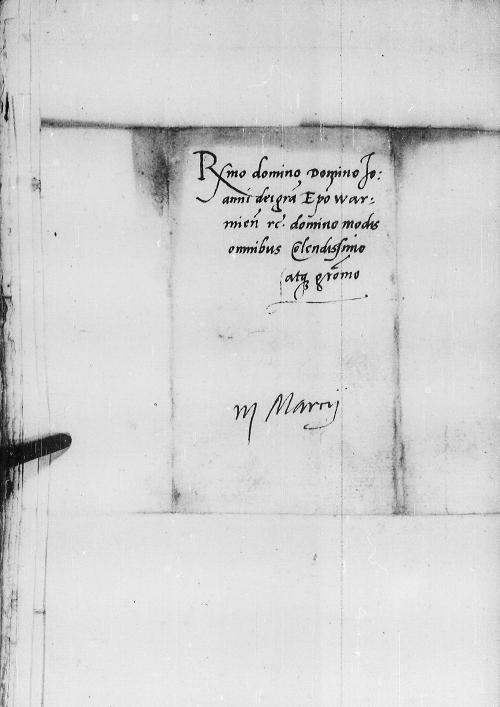 Rmo domino Domino Jo:
anni dei grã Epõ War:
mieñ rc̃. domino modis
omnibus Colendissimo
atq̃ grõmo
iij Marcij